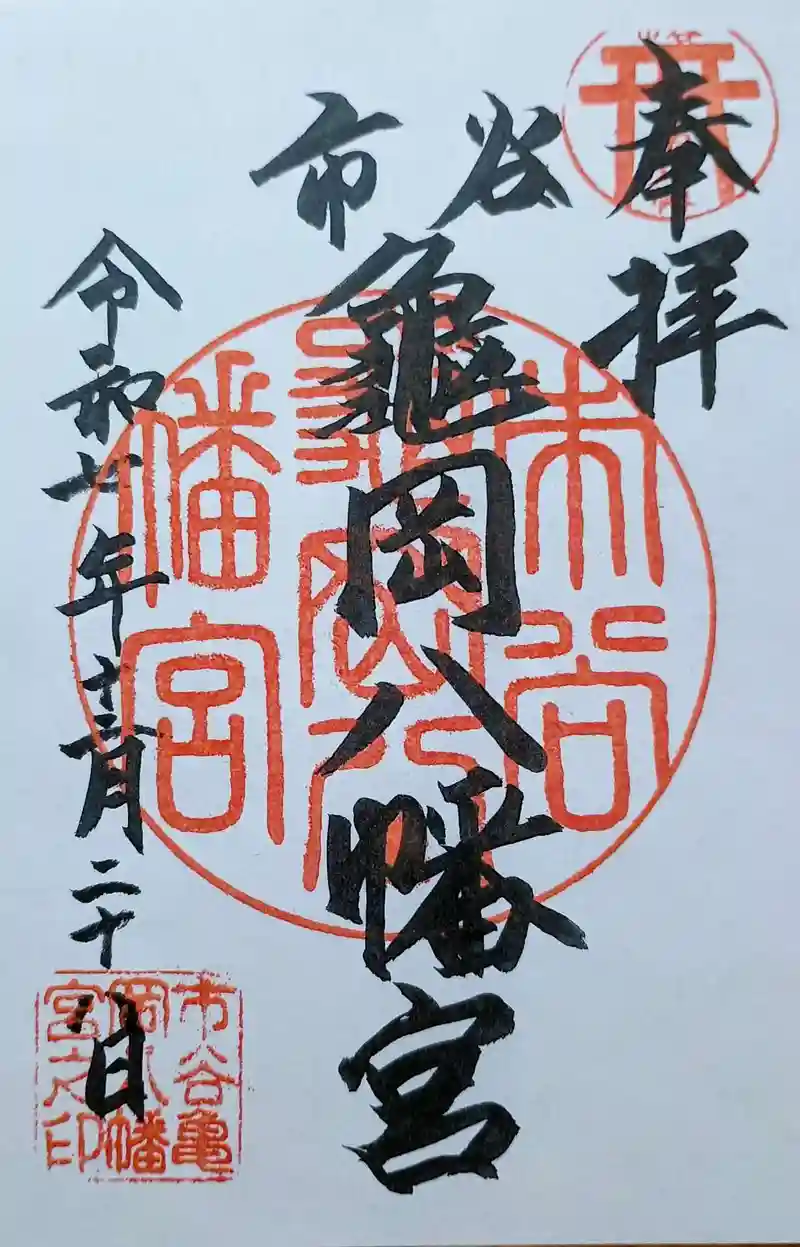 奉拝
市谷
龜岡八幡宮
令和七年十二月二十八日
市谷亀
岡八幡
宮之印